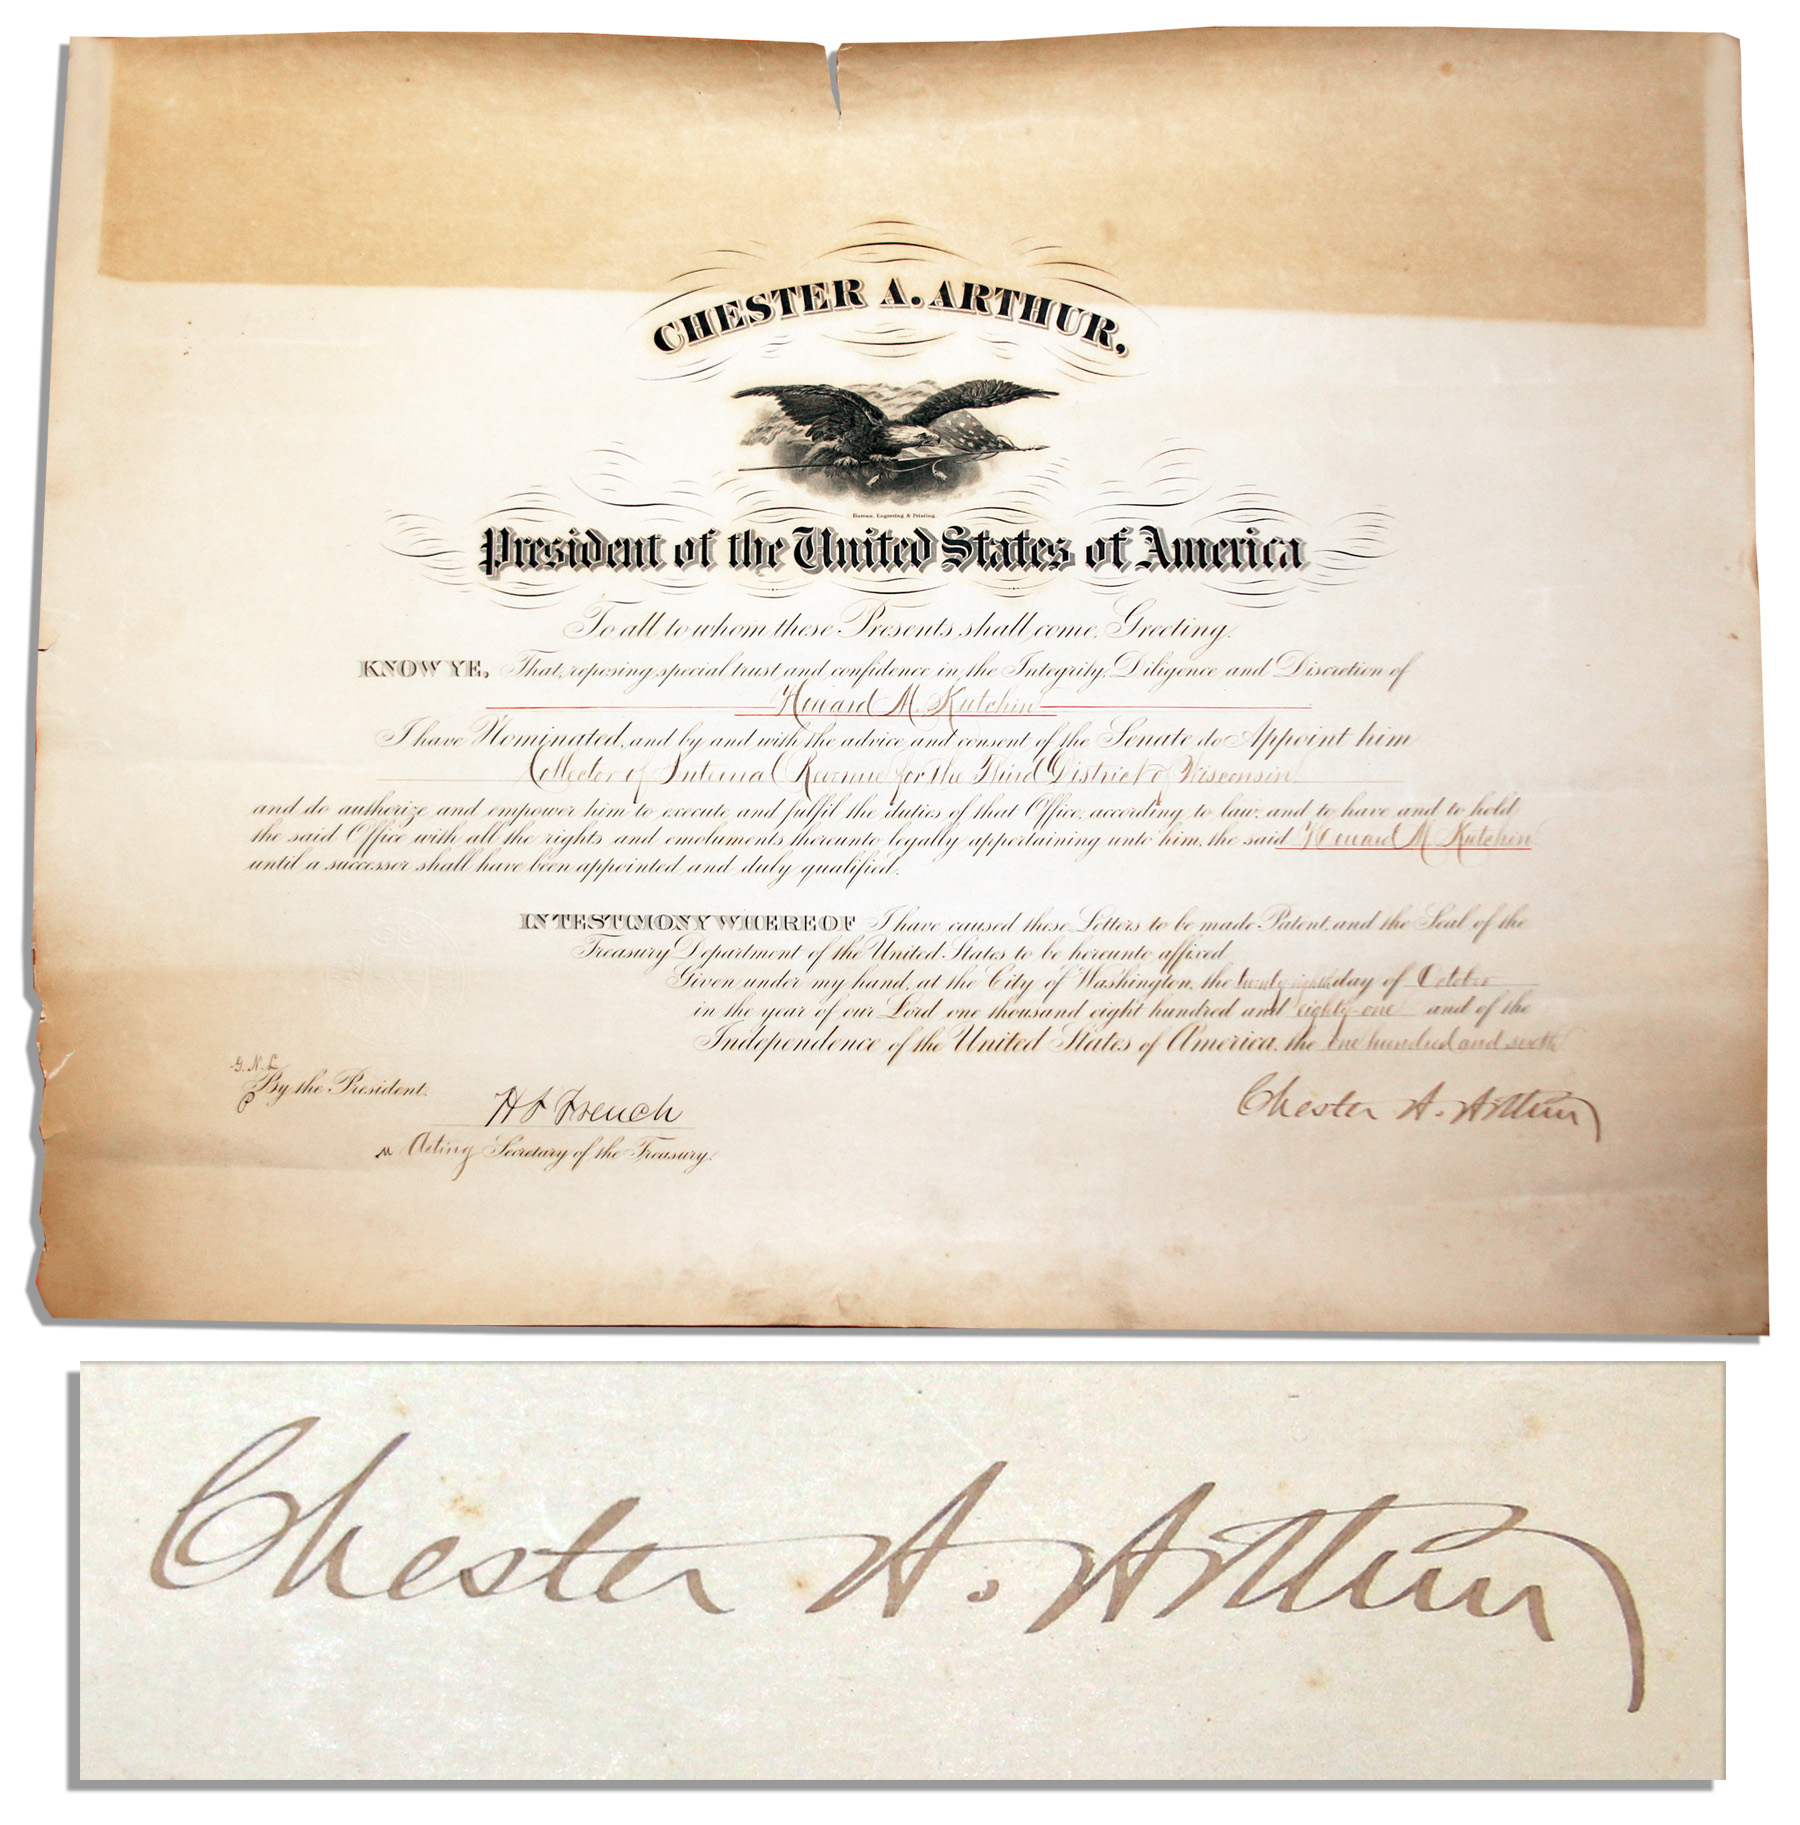 CHESTER A. ARTHUR,
Bureau, Engraving & Printing.
President of the United States of America
To all to whom these Presents shall come, Greeting:
KNOW YE, That, reposing special trust and confidence in the Integrity, Diligence and Discretion of
Howard M. Kutchin
I have Nominated, and by and with the advice and consent of the Senate do Appoint him
Collector of Internal Revenue for the Third District of Wisconsin
and do authorize and empower him to execute and fulfil the duties of that Office, according to law; and to have and to hold
the said Office with all the rights and emoluments thereunto legally appertaining unto him, the said Howard M. Kutchin
until a successor shall have been appointed and duly qualified.
IN TESTIMONY WHEREOF I have caused these Letters to be made Patent, and the Seal of the
Treasury Department of the United States to be hereunto affixed
Given under my hand, at the City of Washington, the twenty eighth day of October
in the year of our Lord one thousand eight hundred and eighty-one and of the
Independence of the United States of America, the one hundred and sixth
G.N.L.
By the President:
H F French
Acting Secretary of the Treasury.
Chester A. Arthur
Chester A. Arthur